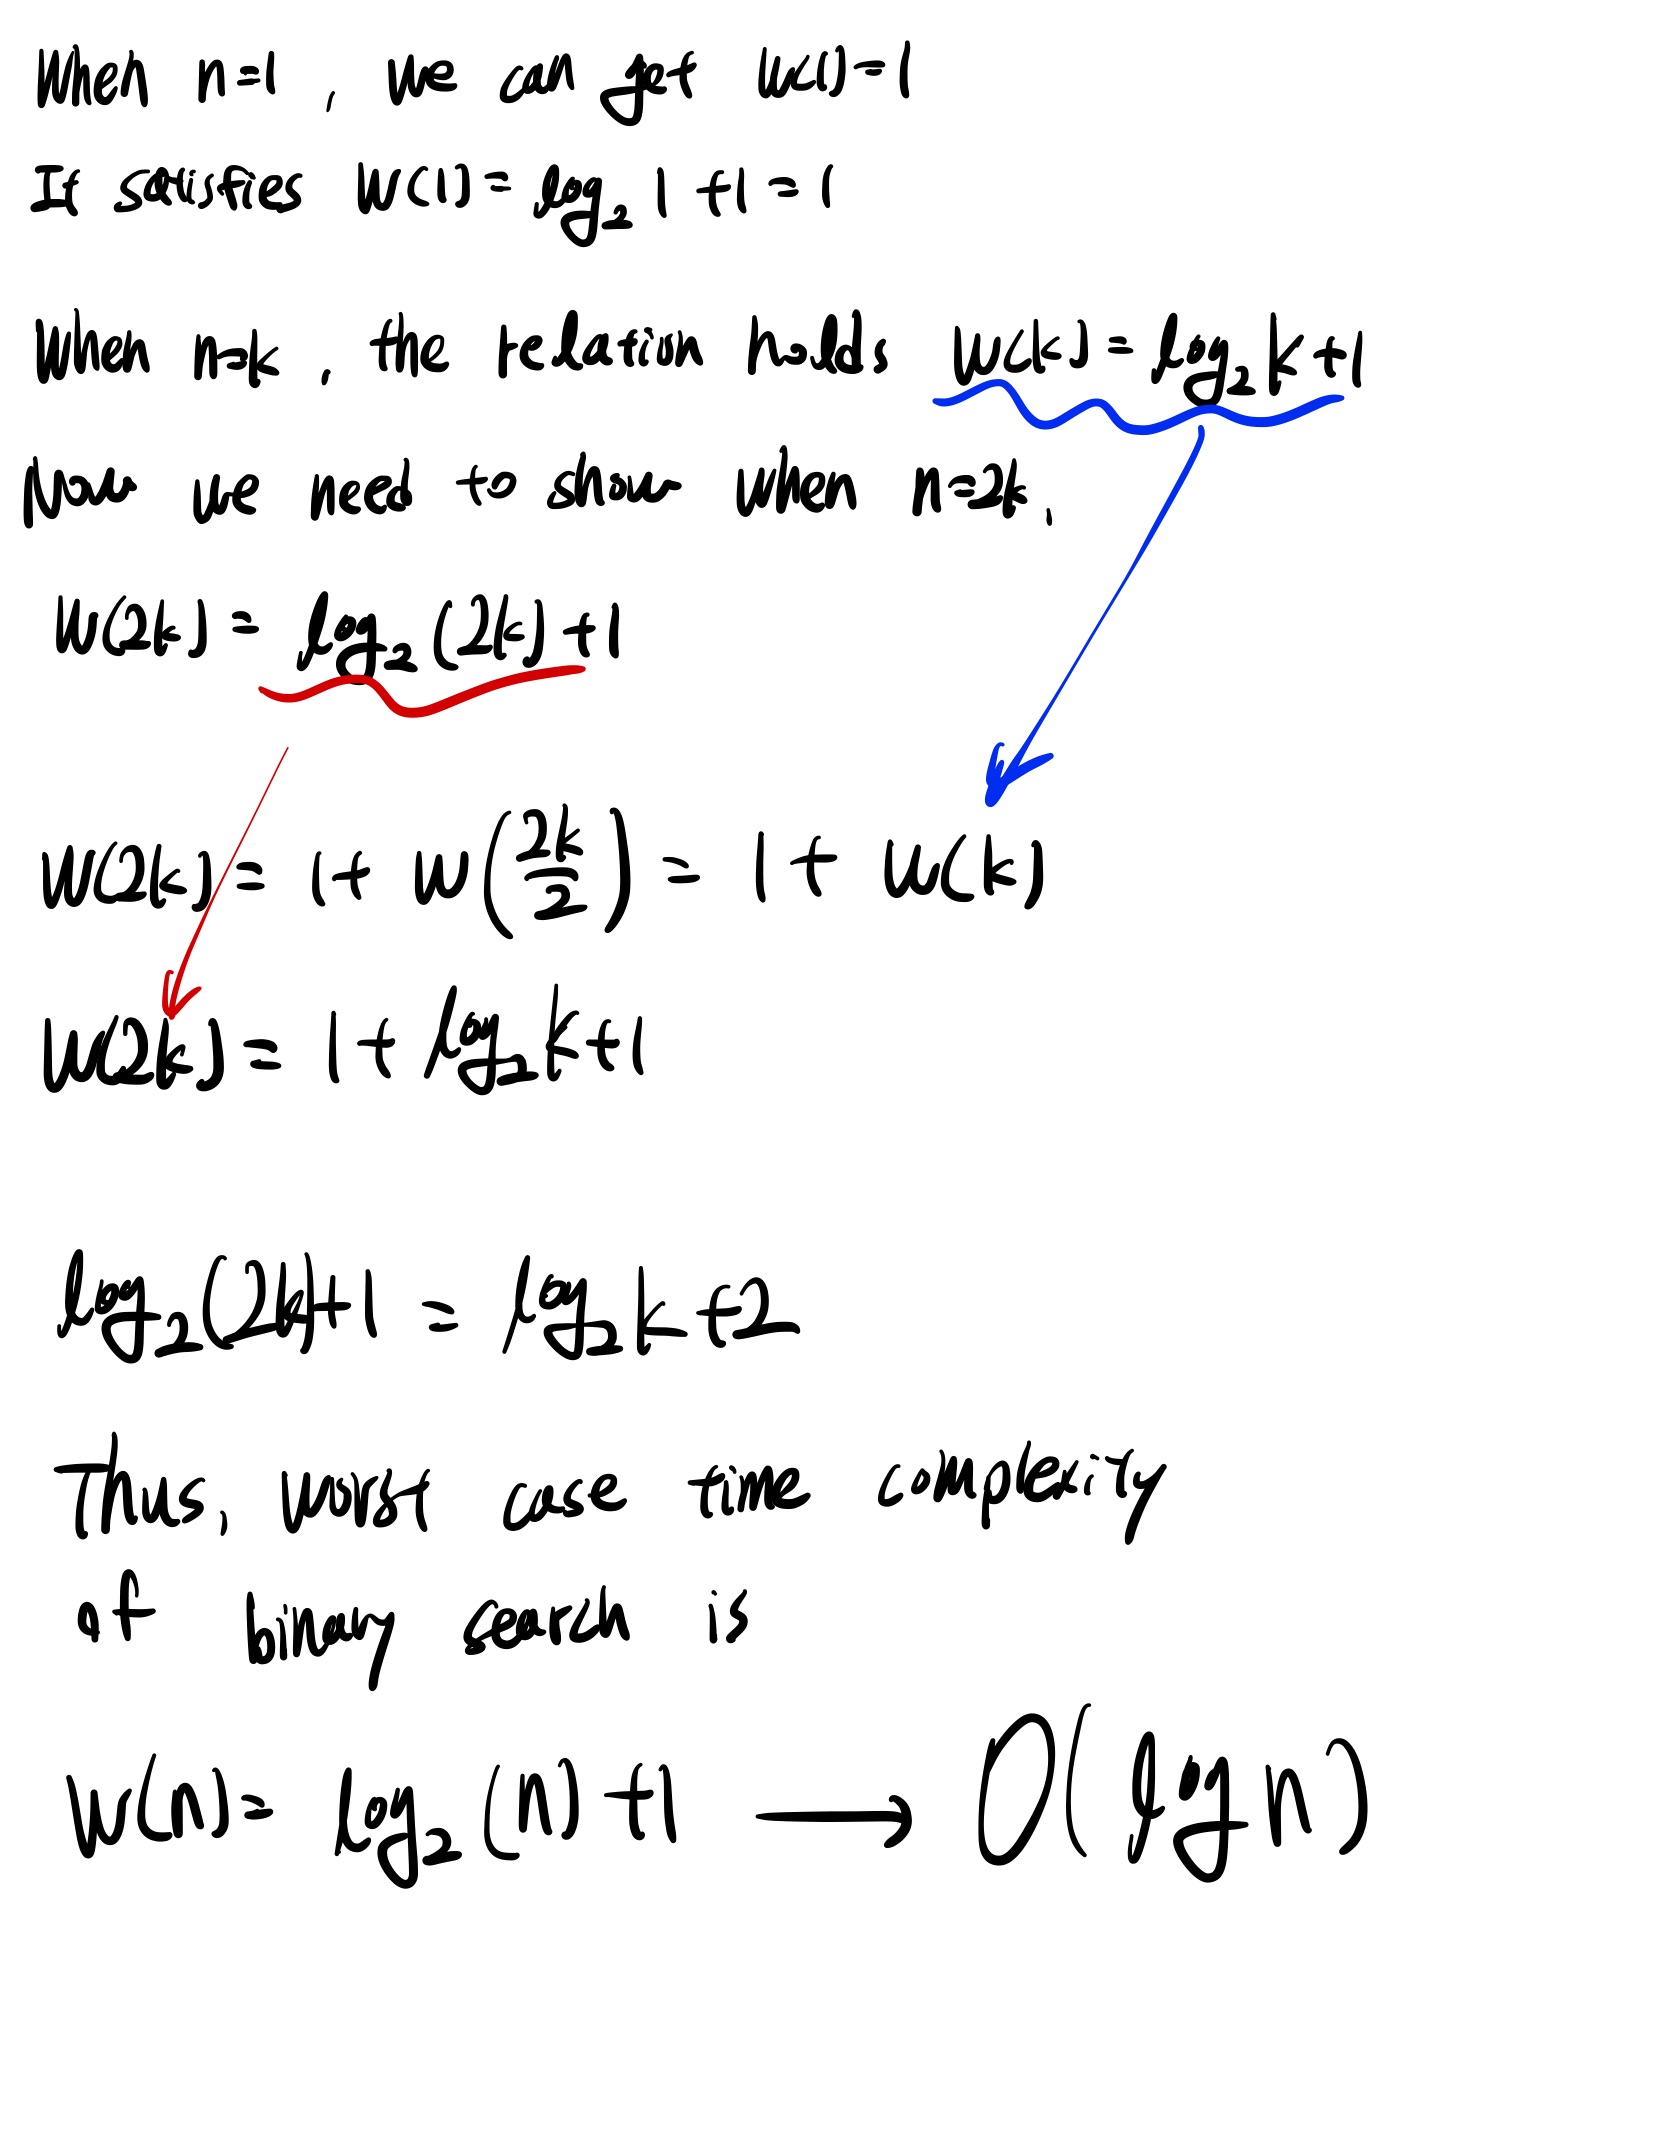 When n=1, we can get W(1)=1
It satisfies W(1)= log₂ 1 +1 = 1
When n=k, the relation holds W(k) = log₂ k+1
Now we need to show when n=2k,
W(2k) = log₂ (2k) +1
W(2k) = 1+ W(2k/2) = 1+ W(k)
W(2k) = 1+ log₂ k+1
log₂(2k)+1 = log₂ k +2
Thus, worst case time complexity
of binary search is
W(n)= log₂ (n) +1 ⟶ O(log n)